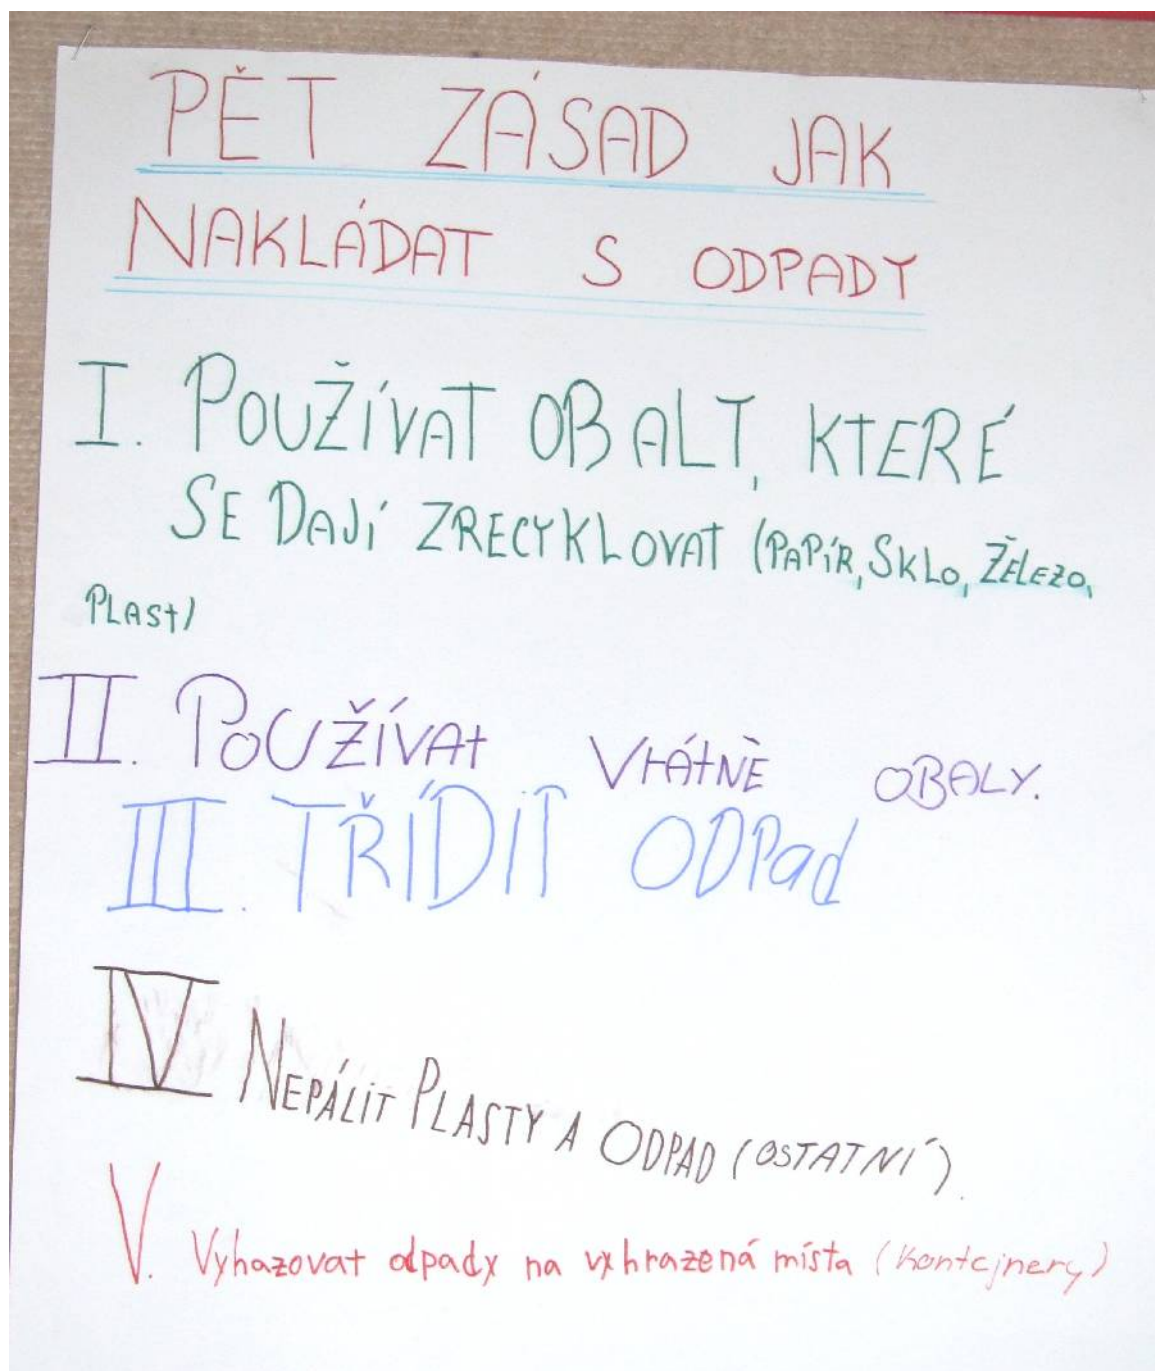 PĚT ZÁSAD JAK
NAKLÁDAT S ODPADY
I. POUŽÍVAT OBALY, KTERÉ
SE DAJÍ ZRECYKLOVAT (PAPÍR, SKLO, ŽELEZO,
PLAST)
II. POUŽÍVAt VRÁtNÈ OBALY.
III. TŘÍDiT ODPad
IV NEPÁLiT PLASTY A ODPAD (OSTATNÍ).
V. Vyhazovat odpady na vyhrazená místa (kontejnery)